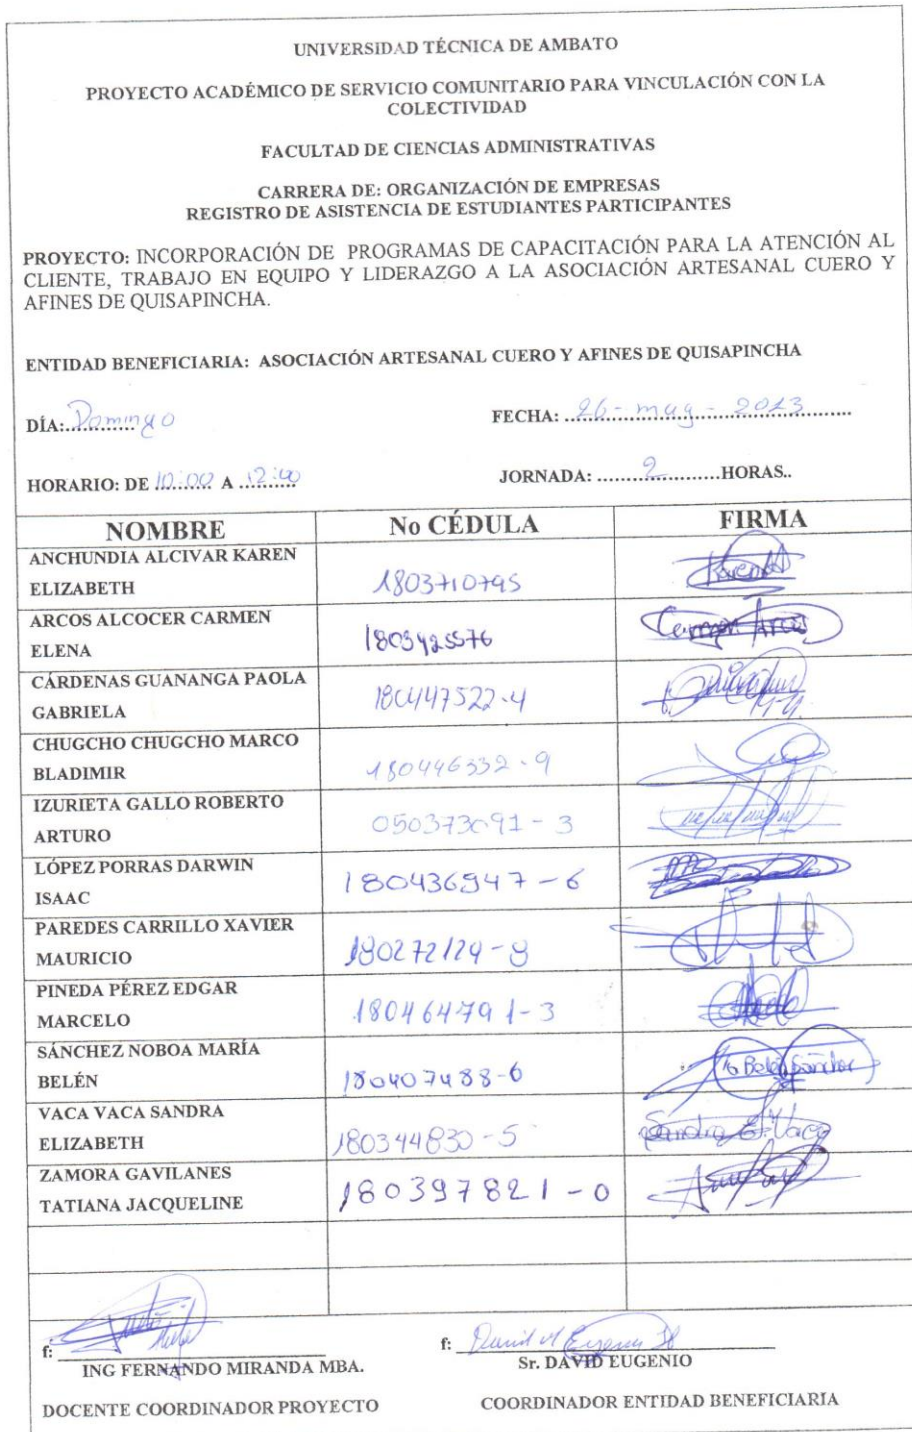 UNIVERSIDAD TÉCNICA DE AMBATO
PROYECTO ACADÉMICO DE SERVICIO COMUNITARIO PARA VINCULACIÓN CON LA
COLECTIVIDAD
FACULTAD DE CIENCIAS ADMINISTRATIVAS
CARRERA DE: ORGANIZACIÓN DE EMPRESAS
REGISTRO DE ASISTENCIA DE ESTUDIANTES PARTICIPANTES
PROYECTO: INCORPORACIÓN DE PROGRAMAS DE CAPACITACIÓN PARA LA ATENCIÓN AL
CLIENTE, TRABAJO EN EQUIPO Y LIDERAZGO A LA ASOCIACIÓN ARTESANAL CUERO Y
AFINES DE QUISAPINCHA.
ENTIDAD BENEFICIARIA: ASOCIACIÓN ARTESANAL CUERO Y AFINES DE QUISAPINCHA
DÍA: Domingo FECHA: 26 - may - 2013
HORARIO: DE 10:00 A 12:00 JORNADA: 2 HORAS..
NOMBRE No CÉDULA FIRMA
ANCHUNDIA ALCIVAR KAREN
ELIZABETH 1803710795 Karen
ARCOS ALCOCER CARMEN
ELENA 1803425576 Carmen Arcos
CÁRDENAS GUANANGA PAOLA
GABRIELA 180447522-4
CHUGCHO CHUGCHO MARCO
BLADIMIR 180446332-9
IZURIETA GALLO ROBERTO
ARTURO 050373091-3
LÓPEZ PORRAS DARWIN
ISAAC 180436947-6
PAREDES CARRILLO XAVIER
MAURICIO 180272129-8
PINEDA PÉREZ EDGAR
MARCELO 180464791-3
SÁNCHEZ NOBOA MARÍA
BELÉN 180407488-6 Ma Belén Sánchez
VACA VACA SANDRA
ELIZABETH 180344830-5 Sandra E. Vaca
ZAMORA GAVILANES
TATIANA JACQUELINE 180397821-0
f: f: David Eugenio
ING FERNANDO MIRANDA MBA. Sr. DAVID EUGENIO
DOCENTE COORDINADOR PROYECTO COORDINADOR ENTIDAD BENEFICIARIA